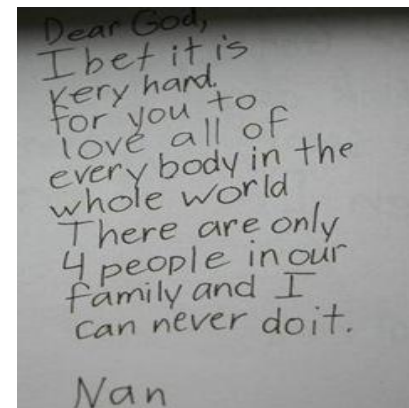 Dear God,
I bet it is
very hard
for you to
love all of
every body in the
whole world
There are only
4 people in our
family and I
can never do it.
Nan